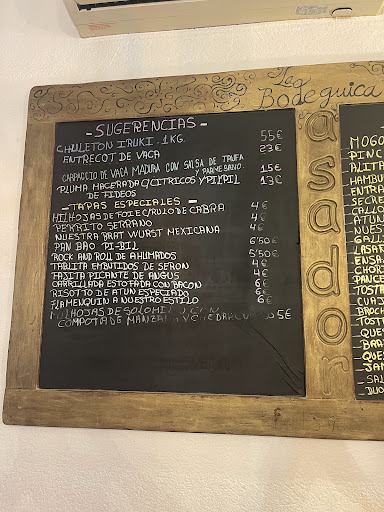 La
Bodeguica
asador
- SUGERENCIAS -
CHULETON IRUKI. 1KG. 55€
ENTRECOT DE VACA 23€
CARPACCIO DE VACA MADURA CON SALSA DE TRUFA
Y PARMESANO. 15€
PLUMA MACERADA C/CITRICOS Y PILPIL 13€
DE FIDEOS
- TAPAS ESPECIALES -
MILHOJAS DE FOIE C/RULO DE CABRA 4€
PERRITO SERRANO 4€
NUESTRA BRAT WURST MEXICANA 4€
PAN BAO PI-BIL 6'50€
ROCK AND ROLL DE AHUMADOS 5'50€
TABLITA EMBUTIDOS DE SERON 4€
FAJITA PICANTE DE ANGUS 4€
CARRILLADA ESTOFADA CON BACON 6€
RISOTTO DE ATUN ESPECIADO 6€
FLAMENQUIN A NUESTRO ESTILO 6€
MILHOJAS DE SOLOMILLO CON
COMPOTA DE MANZANA Y 5€
MOGO
PINC
ALITA
HAMBU
ENTRA
SECRE
CALLO
ATUN
NUES
GALL
LASA
ENSA
CHOR
PANCE
TOST
CUAJ
BROCH
TOST
QUES
BRA
QUES
JAM
SAL
DUO